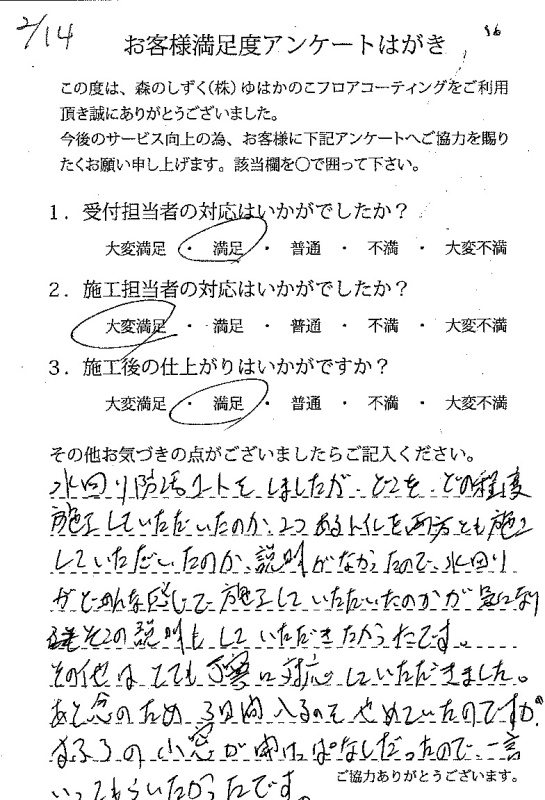 2/14
お客様満足度アンケートはがき
この度は、森のしずく(株)ゆはかのこフロアコーティングをご利用
頂き誠にありがとうございました。
今後のサービス向上の為、お客様に下記アンケートへご協力を賜り
たくお願い申し上げます。該当欄を○で囲って下さい。
1．受付担当者の対応はいかがでしたか？
大変満足 ・ 満足 ・ 普通 ・ 不満 ・ 大変不満
2．施工担当者の対応はいかがでしたか？
大変満足 ・ 満足 ・ 普通 ・ 不満 ・ 大変不満
3．施工後の仕上がりはいかがですか？
大変満足 ・ 満足 ・ 普通 ・ 不満 ・ 大変不満
その他お気づきの点がございましたらご記入ください。
水回り防汚コートをしましたが、どこを、どの程度
施工していただいたのか、2つあるトイレを両方とも施工
していただいたのか、説明がなかったので、水回り
がどんな感じで施工していただいたのかが気になり
そこの説明もしていただきたかったです。
その他はとても丁寧に対応していただきました。
あと念のため3日間入るのをやめていたのですが、
おふろの小窓が開けっぱなしだったので、一言
いってもらいたかったです。
ご協力ありがとうございます。